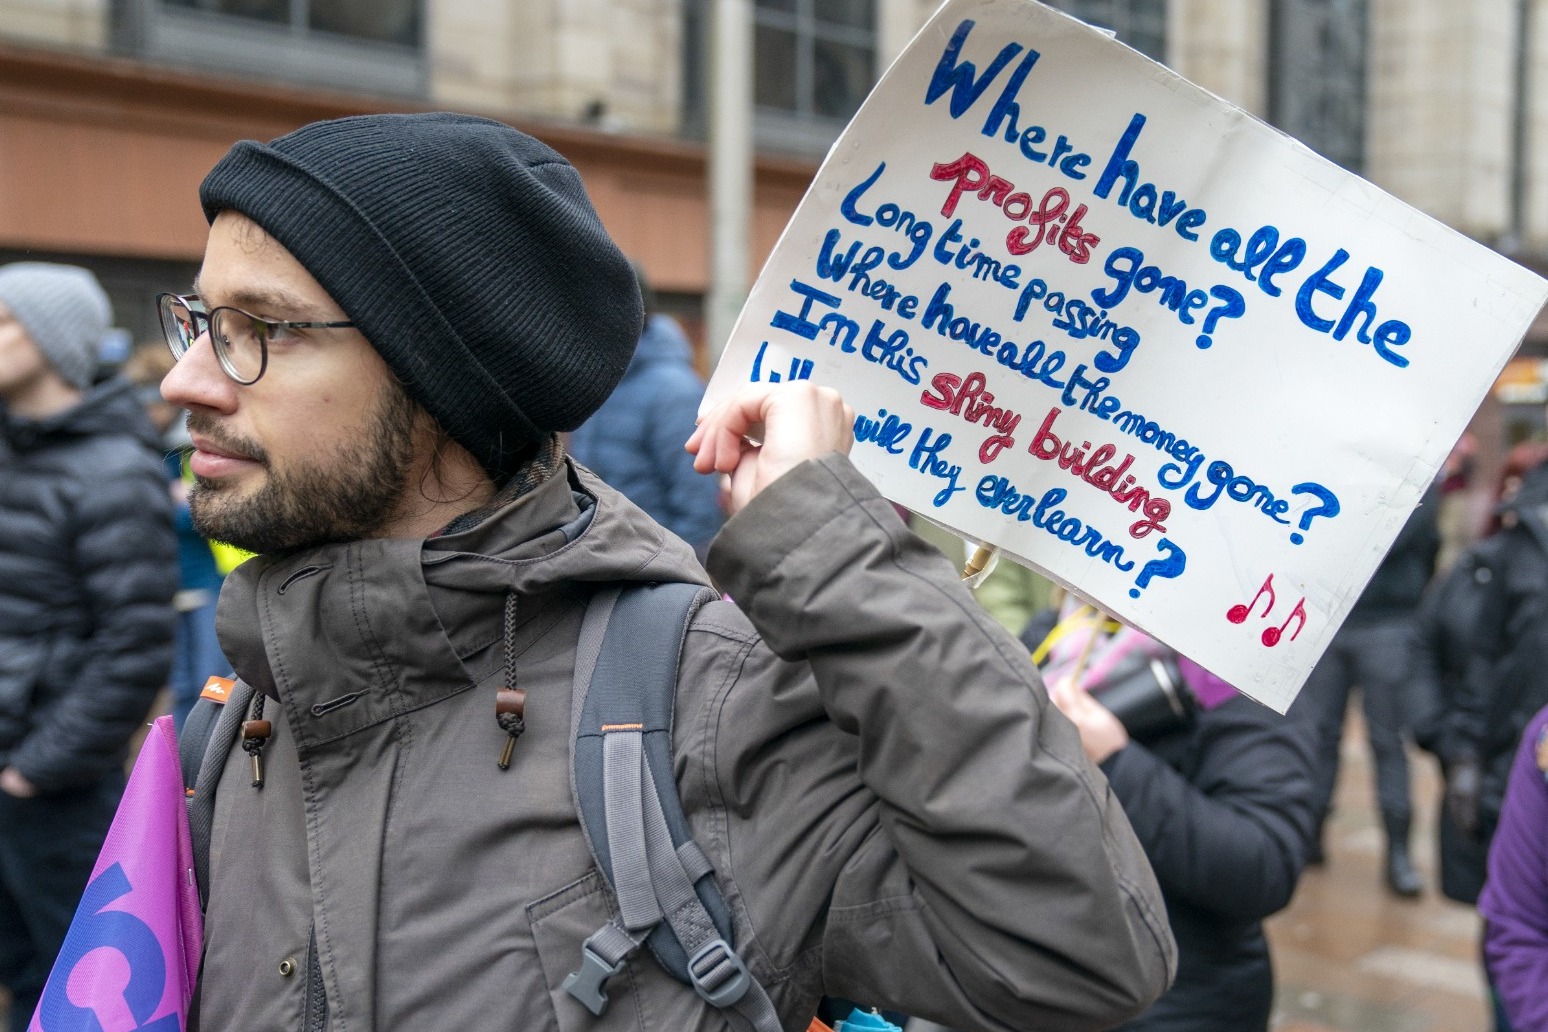 Where have all the
profits gone?
Long time passing
Where have all the money gone?
In this shiny building
will they ever learn?